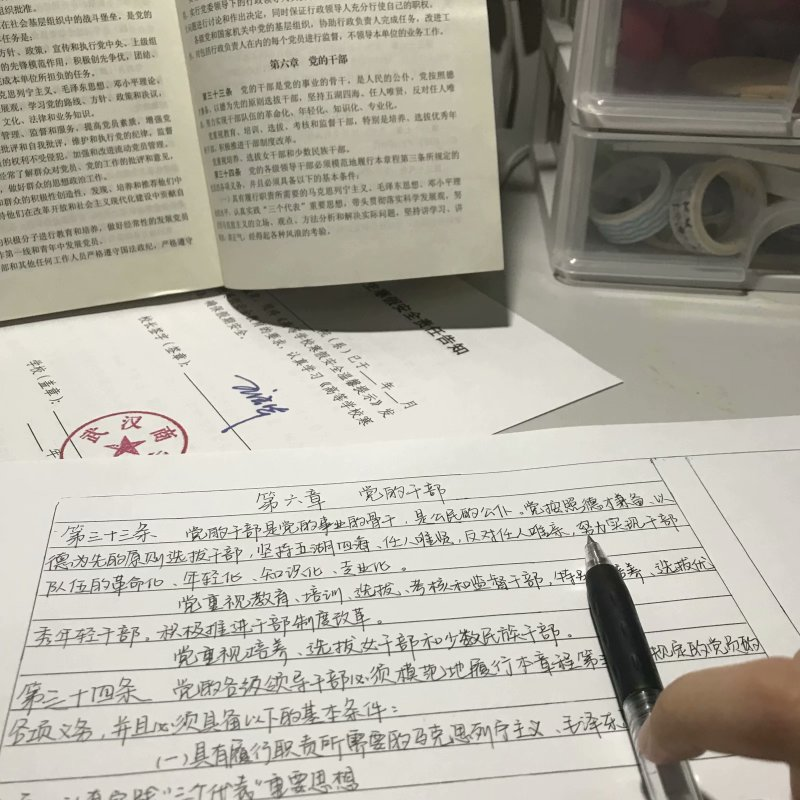 组织批准。
在社会基层组织中的战斗堡垒，是党的
任务是：
方针、政策，宣传和执行党中央、上级组
的先锋模范作用，积极创先争优，团结、
完成本单位所担负的任务。
克思列宁主义、毛泽东思想、邓小平理论、
展观，学习党的路线、方针、政策和决议，
文化、法律和业务知识。
管理、监督和服务，提高党员素质，增强党
批评和自我批评，维护和执行党的纪律，监督
的权利不受侵犯。加强和改进流动党员管理。
经常了解群众对党员、党的工作的批评和意见，
，做好群众的思想政治工作。
和群众的积极性创造性，发现、培养和推荐他们中
持他们在改革开放和社会主义现代化建设中贡献自
的积极分子进行教育和培养，做好经常性的发展党员
作第一线和青年中发展党员。
部和其他任何工作人员严格遵守国法政纪，严格遵守
实行党委领导下的行政领导人
进行讨论和作出决定，同时保证行政领导人充分行使自己的职权。
各级党和国家机关中党的基层组织，协助行政负责人完成任务，改进工
，对包括行政负责人在内的每个党员进行监督，不领导本单位的业务工作。
第六章 党的干部
第三十三条 党的干部是党的事业的骨干，是人民的公仆。党按照德
才兼备、以德为先的原则选拔干部，坚持五湖四海、任人唯贤，反对任人唯
亲，努力实现干部队伍的革命化、年轻化、知识化、专业化。
党重视教育、培训、选拔、考核和监督干部，特别是培养、选拔优秀年
轻干部。积极推进干部制度改革。
党重视培养、选拔女干部和少数民族干部。
第三十四条 党的各级领导干部必须模范地履行本章程第三条所规定的
党员的各项义务，并且必须具备以下的基本条件：
（一）具有履行职责所需要的马克思列宁主义、毛泽东思想、邓小平理
论水平，认真实践“三个代表”重要思想，带头贯彻落实科学发展观，努
力用马克思主义的立场、观点、方法分析和解决实际问题，坚持讲学习、讲
政治、讲正气，经得起各种风浪的考验。
寒假安全责任告知
院（系）已于 年 月
学校寒假安全温馨提示》发
的要求，认真学习《高等学校寒
确保假期安全。
校长签字（签章）：
学校（盖章）：
年
武汉商
第六章 党的干部
第三十三条 党的干部是党的事业的骨干，是公民的公仆。党按照德才兼备、以
德为先的原则选拔干部，坚持五湖四海、任人唯贤，反对任人唯亲，努力实现干部
队伍的革命化、年轻化、知识化、专业化。
党重视教育、培训、选拔、考核和监督干部，特别 培养、选拔优
秀年轻干部。积极推进干部制度改革。
党重视培养、选拔女干部和少数民族干部。
第三十四条 党的各级领导干部必须模范地履行本章程第三 规定的党员的
各项义务，并且必须具备以下的基本条件：
（一）具有履行职责所需要的马克思列宁主义、毛泽东
认真实践“三个代表”重要思想